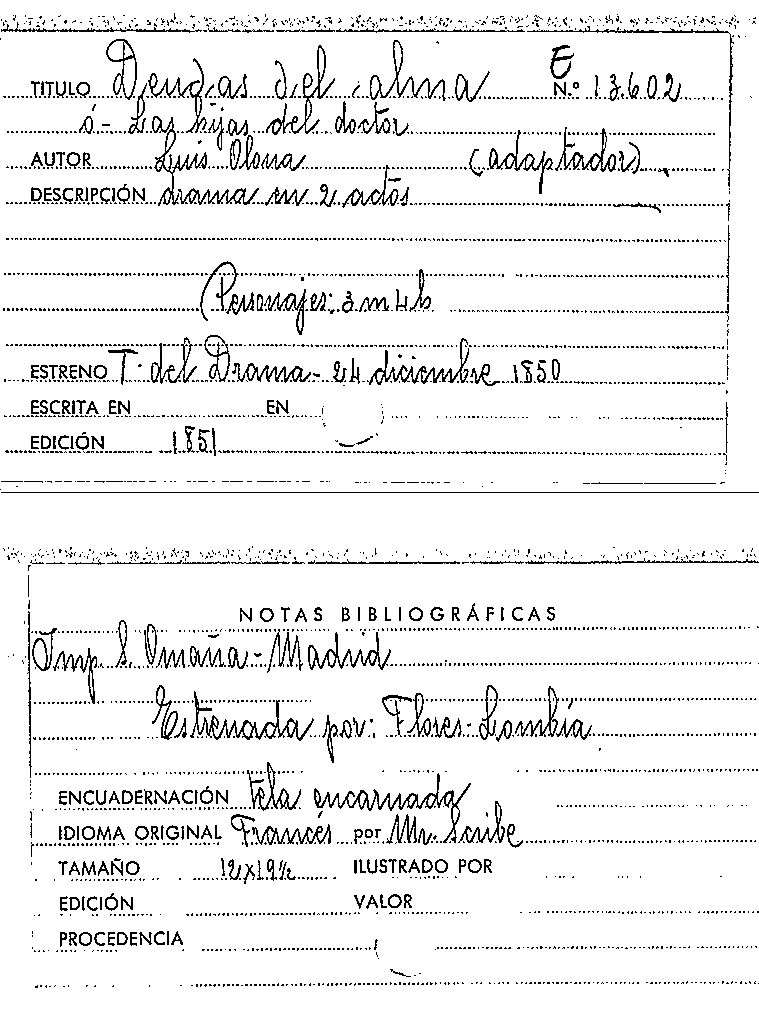 TITULO Deudas del alma E N.º 13.602
ó - Las hijas del doctor
AUTOR Luis Olona (adaptador)
DESCRIPCIÓN drama en 2 actos
(Personajes: 3 m 4 h
ESTRENO T. del Drama - 24 diciembre 1850
ESCRITA EN EN
EDICIÓN 1851
NOTAS BIBLIOGRÁFICAS
Imp S. Omaña - Madrid
Estrenada por: Flores - Lombía
ENCUADERNACIÓN tela encarnada
IDIOMA ORIGINAL Francés por Mr. Scribe
TAMAÑO 12x19½ ILUSTRADO POR
EDICIÓN VALOR
PROCEDENCIA